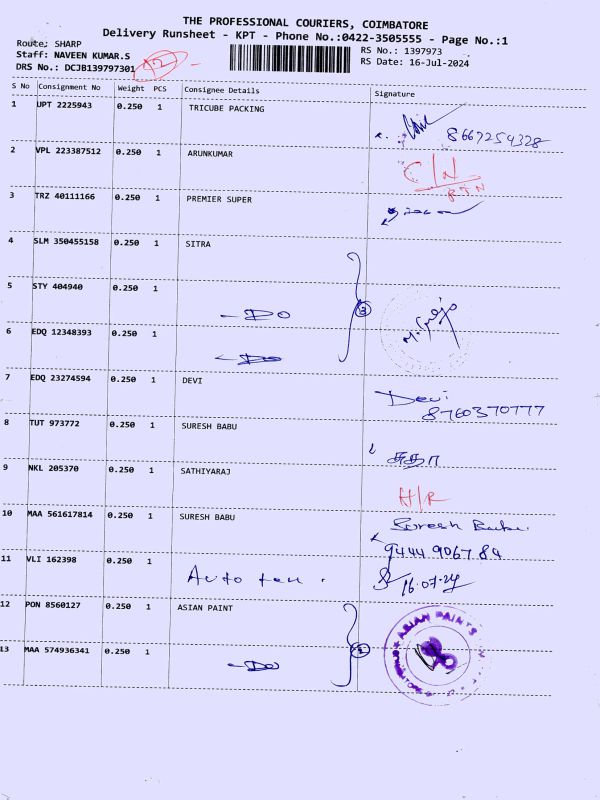 THE PROFESSIONAL COURIERS, COIMBATORE
Delivery Runsheet - KPT - Phone No.:0422-3505555 - Page No.:1
Route: SHARP
RS No.: 1397973
Staff: NAVEEN KUMAR.S
RS Date: 16-Jul-2024
DRS No.: DCJB139797301
S No Consignment No Weight PCS Consignee Details Signature
1 UPT 2225943 0.250 1 TRICUBE PACKING
8667254328
2 VPL 223387512 0.250 1 ARUNKUMAR
C/N
RTN
3 TRZ 40111166 0.250 1 PREMIER SUPER
4 SLM 350455158 0.250 1 SITRA
5 STY 404940 0.250 1 -DO
3
6 EDQ 12348393 0.250 1 -DO
7 EDQ 23274594 0.250 1 DEVI
Devi
8760370777
8 TUT 973772 0.250 1 SURESH BABU
சுதா
9 NKL 205370 0.250 1 SATHIYARAJ
H/R
10 MAA 561617814 0.250 1 SURESH BABU
Suresh Babu.
9444 9067 84
11 VLI 162398 0.250 1
16.07.24
12 PON 8560127 0.250 1 ASIAN PAINT
ASIAN PAINTS
13 MAA 574936341 0.250 1 -DO